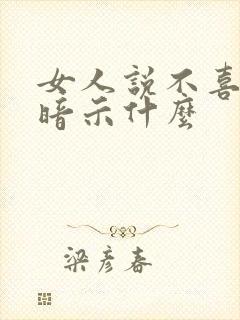 女人説不喜
暗示什麼
梁彦春